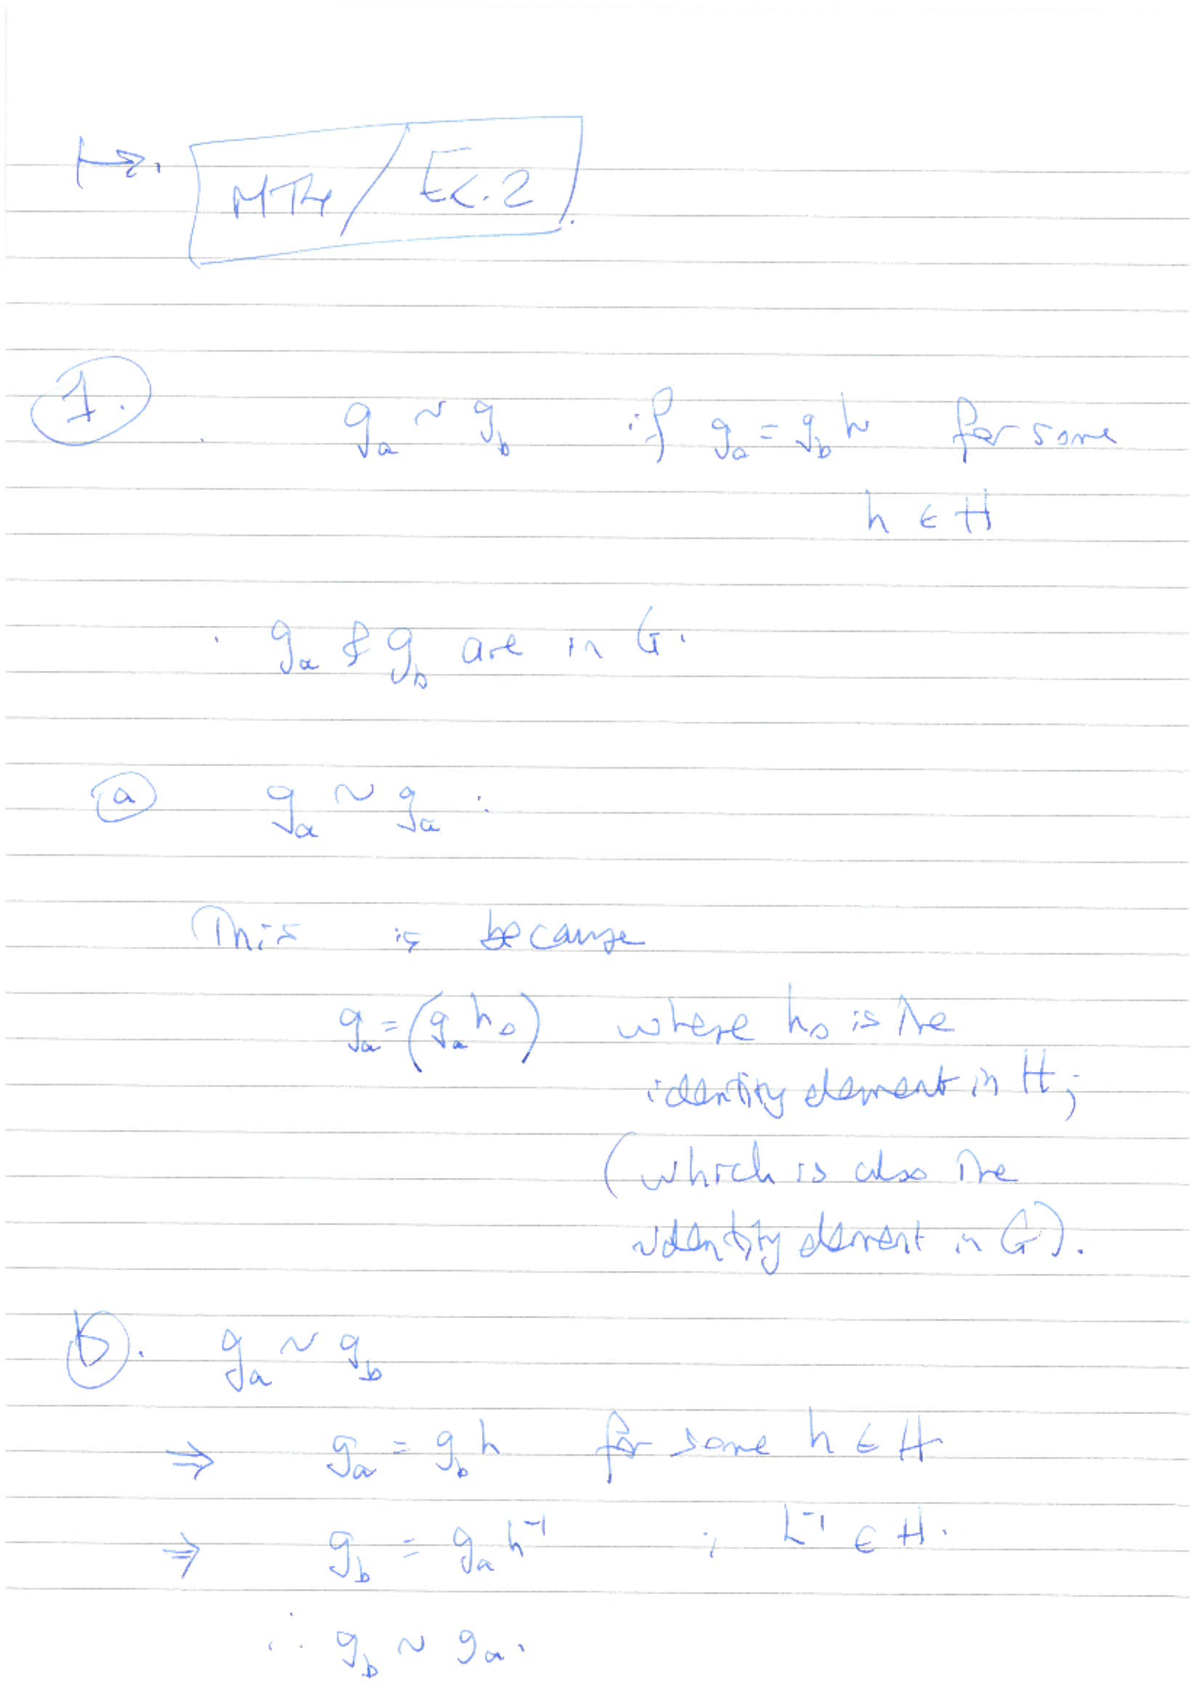 ↦. MT4 / Ex. 2.
1. g_a ~ g_b if g_a = g_b h for some
h ∈ H
g_a & g_b are in G.
a g_a ~ g_a :
This is because
g_a = (g_a h_0) where h_0 is the
identity element in H;
(which is also the
identity element in G).
b. g_a ~ g_b
⇒ g_a = g_b h for some h ∈ H
⇒ g_b = g_a h^-1 ; h^-1 ∈ H.
∴ g_b ~ g_a.